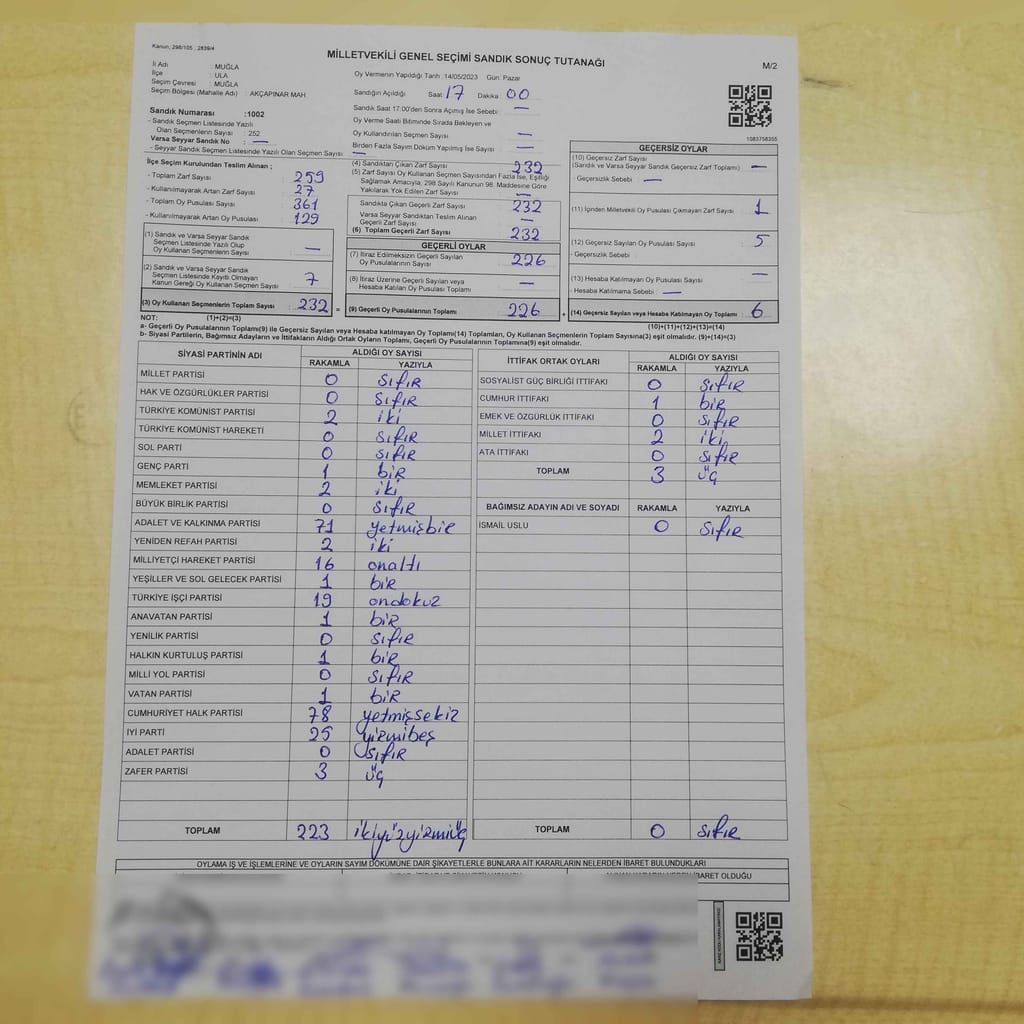 Kanun, 298/105 , 2839/4
MİLLETVEKİLİ GENEL SEÇİMİ SANDIK SONUÇ TUTANAĞI
M/2
İl Adı : MUĞLA
İlçe : ULA
Seçim Çevresi : MUĞLA
Seçim Bölgesi (Mahalle Adı) : AKÇAPINAR MAH.
Sandık Numarası :1002
- Sandık Seçmen Listesinde Yazılı
Olan Seçmenlerin Sayısı : 252
Varsa Seyyar Sandık No : —
- Seyyar Sandık Seçmen Listesinde Yazılı Olan Seçmen Sayısı : —
İlçe Seçim Kurulundan Teslim Alınan ;
- Toplam Zarf Sayısı : 259
- Kullanılmayarak Artan Zarf Sayısı : 27
- Toplam Oy Pusulası Sayısı : 361
- Kullanılmayarak Artan Oy Pusulası : 129
(1) Sandık ve Varsa Seyyar Sandık
Seçmen Listesinde Yazılı Olup
Oy Kullanan Seçmenlerin Sayısı : —
(2) Sandık ve Varsa Seyyar Sandık
Seçmen Listesinde Kayıtlı Olmayan
Kanun Gereği Oy Kullanan Seçmen Sayısı : 7
(3) Oy Kullanan Seçmenlerin Toplam Sayısı : 232 =
Oy Vermenin Yapıldığı Tarih :14/05/2023 Gün: Pazar
Sandığın Açıldığı Saat 17 Dakika 00
Sandık Saat 17:00'den Sonra Açımış İse Sebebi : —
Oy Verme Saati Bitiminde Sırada Bekleyen ve
Oy Kullandırılan Seçmen Sayısı : —
Birden Fazla Sayım Döküm Yapılmış İse Sayısı : —
(4) Sandıktan Çıkan Zarf Sayısı : 232
(5) Zarf Sayısı Oy Kullanan Seçmen Sayısından Fazla İse, Eşitliği
Sağlamak Amacıyla, 298 Sayılı Kanunun 98. Maddesine Göre
Yakılarak Yok Edilen Zarf Sayısı : —
Sandıkta Çıkan Geçerli Zarf Sayısı : 232
Varsa Seyyar Sandıktan Teslim Alınan
Geçerli Zarf Sayısı : —
(6) Toplam Geçerli Zarf Sayısı : 232
GEÇERLİ OYLAR
(7) İtiraz Edilmeksizin Geçerli Sayılan
Oy Pusulalarının Sayısı : 226
(8) İtiraz Üzerine Geçerli Sayılan veya
Hesaba Katılan Oy Pusulası Toplamı : —
(9) Geçerli Oy Pusulalarının Toplamı : 226 +
1083758355
GEÇERSİZ OYLAR
(10) Geçersiz Zarf Sayısı
(Sandık ve Varsa Seyyar Sandık Geçersiz Zarf Toplamı) : —
- Geçersizlik Sebebi : —
(11) İçinden Milletvekili Oy Pusulası Çıkmayan Zarf Sayısı : 1
(12) Geçersiz Sayılan Oy Pusulası Sayısı : 5
- Geçersizlik Sebebi :
(13) Hesaba Katılmayan Oy Pusulası Sayısı : —
- Hesaba Katılmama Sebebi : —
(14) Geçersiz Sayılan veya Hesaba Katılmayan Oy Toplamı : 6
NOT: (1)+(2)=(3)
(10)+(11)+(12)+(13)=(14)
a- Geçerli Oy Pusulalarının Toplamı(9) ile Geçersiz Sayılan veya Hesaba katılmayan Oy Toplamı(14) Toplamları, Oy Kullanan Seçmenlerin Toplam Sayısına(3) eşit olmalıdır. (9)+(14)=(3)
b- Siyasi Partilerin, Bağımsız Adayların ve İttifakların Aldığı Ortak Oyların Toplamı, Geçerli Oy Pusulalarının Toplamına(9) eşit olmalıdır.
SİYASİ PARTİNİN ADI ALDIĞI OY SAYISI
RAKAMLA YAZIYLA
MİLLET PARTİSİ 0 sıfır
HAK VE ÖZGÜRLÜKLER PARTİSİ 0 sıfır
TÜRKİYE KOMÜNİST PARTİSİ 2 iki
TÜRKİYE KOMÜNİST HAREKETİ 0 sıfır
SOL PARTİ 0 sıfır
GENÇ PARTİ 1 bir
MEMLEKET PARTİSİ 2 iki
BÜYÜK BİRLİK PARTİSİ 0 sıfır
ADALET VE KALKINMA PARTİSİ 71 yetmişbir
YENİDEN REFAH PARTİSİ 2 iki
MİLLİYETÇİ HAREKET PARTİSİ 16 onaltı
YEŞİLLER VE SOL GELECEK PARTİSİ 1 bir
TÜRKİYE İŞÇİ PARTİSİ 19 ondokuz
ANAVATAN PARTİSİ 1 bir
YENİLİK PARTİSİ 0 sıfır
HALKIN KURTULUŞ PARTİSİ 1 bir
MİLLİ YOL PARTİSİ 0 sıfır
VATAN PARTİSİ 1 bir
CUMHURİYET HALK PARTİSİ 78 yetmişsekiz
İYİ PARTİ 25 yirmibeş
ADALET PARTİSİ 0 sıfır
ZAFER PARTİSİ 3 üç
TOPLAM 223 ikiyüzyirmiüç
İTTİFAK ORTAK OYLARI ALDIĞI OY SAYISI
RAKAMLA YAZIYLA
SOSYALİST GÜÇ BİRLİĞİ İTTİFAKI 0 sıfır
CUMHUR İTTİFAKI 1 bir
EMEK VE ÖZGÜRLÜK İTTİFAKI 0 sıfır
MİLLET İTTİFAKI 2 iki
ATA İTTİFAKI 0 sıfır
TOPLAM 3 üç
BAĞIMSIZ ADAYIN ADI VE SOYADI RAKAMLA YAZIYLA
İSMAİL USLU 0 sıfır
TOPLAM 0 sıfır
OYLAMA İŞ VE İŞLEMLERİNE VE OYLARIN SAYIM DÖKÜMÜNE DAİR ŞİKAYETLERLE BUNLARA AİT KARARLARIN NELERDEN İBARET BULUNDUKLARI
İBARET OLDUĞU